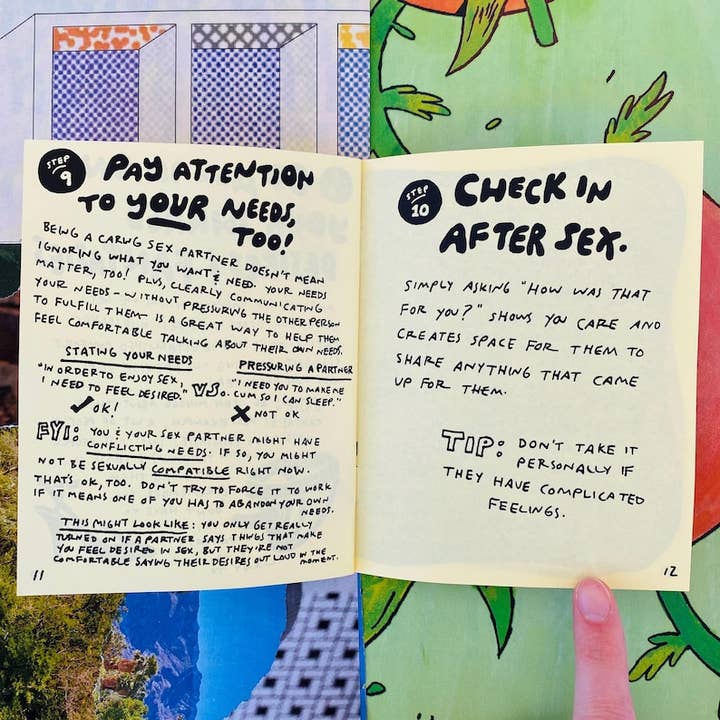 STEP 9
PAY ATTENTION
TO YOUR NEEDS,
TOO!
BEING A CARING SEX PARTNER DOESN'T MEAN
IGNORING WHAT YOU WANT & NEED. YOUR NEEDS
MATTER, TOO! PLUS, CLEARLY COMMUNICATING
YOUR NEEDS - WITHOUT PRESSURING THE OTHER PERSON
TO FULFILL THEM - IS A GREAT WAY TO HELP THEM
FEEL COMFORTABLE TALKING ABOUT THEIR OWN NEEDS.
STATING YOUR NEEDS
"IN ORDER TO ENJOY SEX,
I NEED TO FEEL DESIRED."
✓ OK!
VS.
PRESSURING A PARTNER
"I NEED YOU TO MAKE ME
CUM SO I CAN SLEEP."
✗ NOT OK
FYI: YOU & YOUR SEX PARTNER MIGHT HAVE
CONFLICTING NEEDS. IF SO, YOU MIGHT
NOT BE SEXUALLY COMPATIBLE RIGHT NOW.
THAT'S OK, TOO. DON'T TRY TO FORCE IT TO WORK
IF IT MEANS ONE OF YOU HAS TO ABANDON YOUR OWN
NEEDS.
THIS MIGHT LOOK LIKE: YOU ONLY GET REALLY
TURNED ON IF A PARTNER SAYS THINGS THAT MAKE
YOU FEEL DESIRED IN SEX, BUT THEY'RE NOT
COMFORTABLE SAYING THEIR DESIRES OUT LOUD IN THE
MOMENT.
11
STEP 10
CHECK IN
AFTER SEX.
SIMPLY ASKING "HOW WAS THAT
FOR YOU?" SHOWS YOU CARE AND
CREATES SPACE FOR THEM TO
SHARE ANYTHING THAT CAME
UP FOR THEM.
TIP: DON'T TAKE IT
PERSONALLY IF
THEY HAVE COMPLICATED
FEELINGS.
12